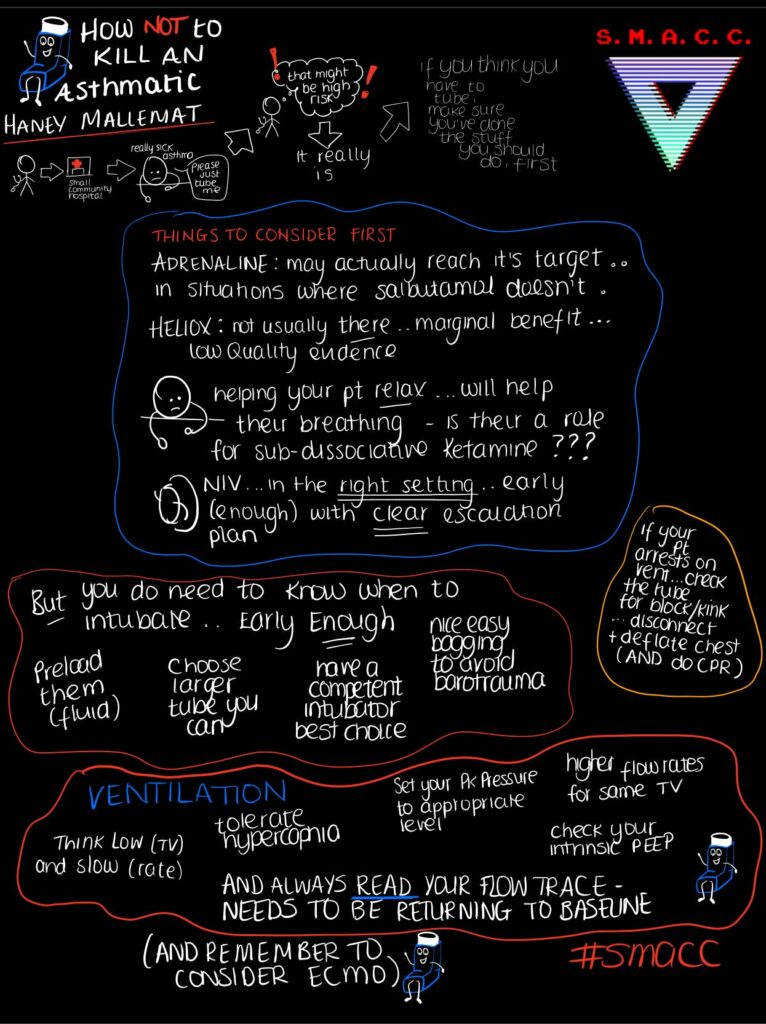 HOW NOT to
KILL AN
ASthmatic
HANEY MALLEMAT
S. M. A. C. C.
small
community
hospital
really SICK
asthma
Please
just
tube
me
!
that might
be high
risk?
!
It really
is
if you think you
have to
tube,
make sure
you've done
the stuff
you should
do, first
THINGS TO CONSIDER FIRST
ADRENALINE: may actually reach it's target..
in situations where salbutamol doesn't.
HELIOX: not usually there.. marginal benefit...
low Quality evidence
helping your pt relax... will help
their breathing - is their a role
for sub-dissociative Ketamine ???
NIV... in the right setting.. early
(enough) with clear escalation
plan
If your
pt
arrests on
vent...check
the tube
for block/kink
... disconnect
+ deflate chest
(AND do CPR)
But you do need to know when to
intubate.. Early Enough
Preload
them
(fluid)
choose
larger
tube you
can
have a
competent
intubator
best choice
nice easy
bagging
to avoid
barotrauma
VENTILATION
Think Low (TV)
and slow (rate)
tolerate
hypercapnia
Set your Pk Pressure
to appropriate
level
higher flow rates
for same TV
check your
intrinsic PEEP
AND ALWAYS READ YOUR FLOW TRACE -
NEEDS TO BE RETURNING TO BASELINE
(AND REMEMBER TO
CONSIDER ECMO)
#smacc